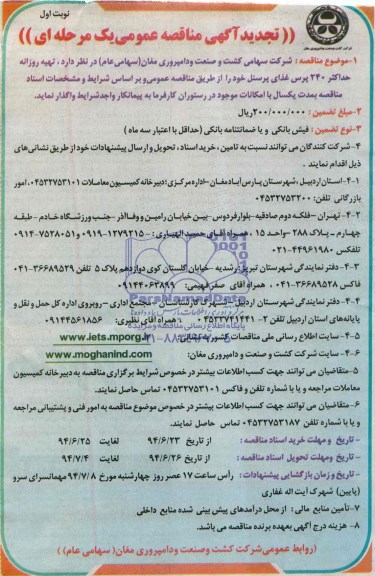 نوبت اول
شرکت کشت و صنعت و دامپروری مغان
(( تجدید آگهی مناقصه عمومی یک مرحله ای ))
۱-موضوع مناقصه : شرکت سهامی کشت و صنعت ودامپروری مغان(سهامی عام) در نظر دارد ، تهیه روزانه
حداکثر ۲۴۰ پرس غذای پرسنل خود را از طریق مناقصه عمومی و بر اساس شرایط و مشخصات اسناد
مناقصه بمدت یکسال با امکانات موجود در رستوران کارفرما به پیمانکار واجدشرایط واگذار نماید.
۲-مبلغ تضمین : ۲۰۰/۰۰۰/۰۰۰ریال
۳-نوع تضمین : فیش بانکی و یا ضمانتنامه بانکی (حداقل با اعتبار سه ماه)
۴-شرکت کنندگان می توانند نسبت به تامین ، خرید اسناد ، تحویل و ارسال پیشنهادات خود از طریق نشانی های
ذیل اقدام نمایند .
۴-۱-استان اردبیل ،شهرستان پارس آباد مغان -اداره مرکزی ؛ دبیرخانه کمیسیون معاملات ۰۴۵۳۲۷۵۳۱۰۱، امور
بازرگانی تلفن: ۰۴۵۳۲۷۵۳۲۰۰
۴-۲- تهران -فلکه دوم صادقیه -بلوار فردوس -بین خیابان رامین و وفاآذر -جنب ورزشگاه خادم -طبقه
چهارم -پلاک ۲۸۸ -واحد ۱۵ ، همراه آقای حمید الهیاری : ۱۲۷۹۲۱۵-۰۹۱۹ و ۷۵۲۸۰۵۱-۰۹۱۴
تلفکس ۴۴۹۶۱۹۸۰-۰۲۱
۴-۳- دفتر نمایندگی شهرستان تبریز : رشدیه -خیابان گلستان کوی دوازدهم پلاک ۵ تلفن ۳۶۶۸۹۵۲۹-۰۴۱
فاکس ۳۶۶۸۹۵۲۸-۰۴۱ ، همراه آقای صفر فهیمی: ۰۹۱۴۴۰۶۳۸۹۹
۴-۴- دفتر نمایندگی شهرستان اردبیل -شهرک کارشناسان - مجتمع اداری -روبروی اداره کل حمل و نقل و
پایانه های استان اردبیل تلفن ۲-۰۴۵۳۳۷۴۱۴۴۱ ، همراه آقای نظیری: ۰۹۱۴۴۵۶۱۸۵۶
۴-۵- سایت اطلاع رسانی ملی مناقصات کشور به نشانی: www.iets.mporg.ir
۴-۶- سایت شرکت کشت و صنعت و دامپروری مغان: www.moghanind.com
۵-متقاضیان می توانند جهت کسب اطلاعات بیشتر در خصوص شرایط برگزاری مناقصه به دبیرخانه کمیسیون
معاملات مراجعه و یا با شماره تلفن و فاکس ۰۴۵۳۲۷۵۳۱۰۱ تماس حاصل نمایند.
۶-متقاضیان می توانند جهت کسب اطلاعات بیشتر در خصوص موضوع مناقصه به امور فنی و پشتیبانی مراجعه
و یا با شماره تلفن ۰۴۵۳۲۷۵۳۱۸۷ تماس حاصل نمایند.
- تاریخ و مهلت خرید اسناد مناقصه : از تاریخ ۹۴/۶/۲۳ لغایت ۹۴/۶/۲۵
- تاریخ ومهلت تحویل اسناد مناقصه : از تاریخ ۹۴/۶/۲۶ لغایت ۹۴/۷/۴
- تاریخ و زمان بازگشایی پیشنهادات : رأس ساعت ۱۷ عصر روز چهارشنبه مورخ ۹۴/۷/۸ مهمانسرای سرو
(پایین) شهرک آیت اله غفاری
۷-تأمین منابع مالی : از محل درآمدهای پیش بینی شده منابع داخلی
۸- هزینه درج آگهی بعهده برنده مناقصه می باشد.
(روابط عمومی شرکت کشت وصنعت ودامپروری مغان( سهامی عام))
ParsNamadData
پایگاه اطلاع رسانی مناقصه و مزایده